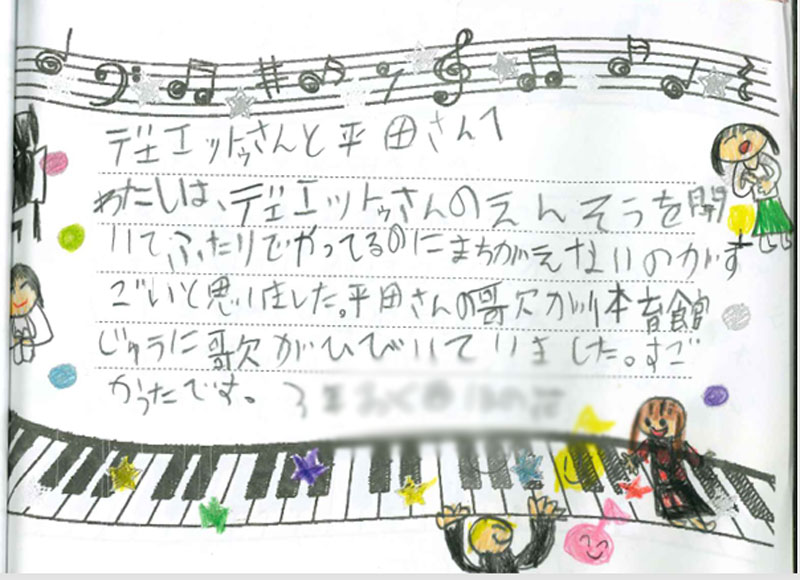 デェエットゥさんと平田さんへ
わたしは、デェエットゥさんのえんそうを開
いてふたりでやってるのにまちがえないのがす
ごいと思いました。平田さんの歌が体育館
じゅうに歌がひびいていました。すご
かったです。